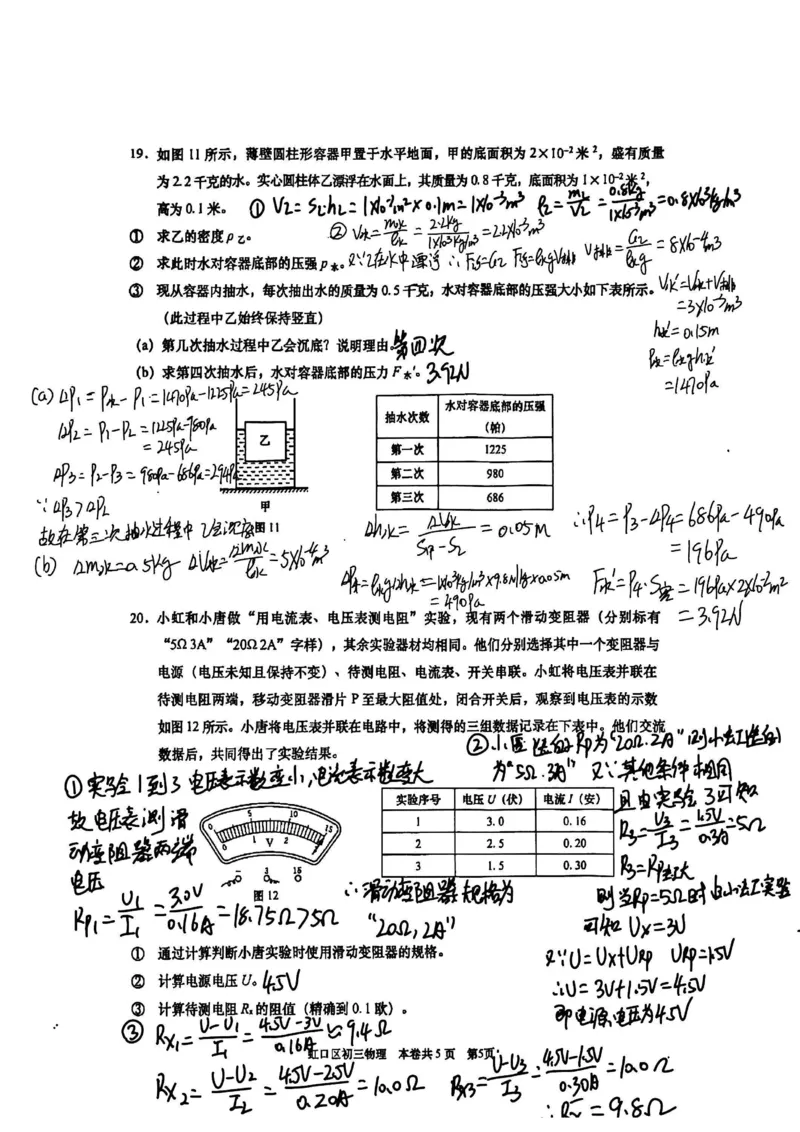 19. 如图 11 所示，薄壁圆柱形容器甲置于水平地面，甲的底面积为 2×10⁻² 米²，盛有质量
为 2.2 千克的水。实心圆柱体乙漂浮在水面上，其质量为 0.8 千克，底面积为 1×10⁻² 米²，
高为 0.1 米。 ① V乙= S乙h乙= 1×10⁻²m²×0.1m= 1×10⁻³m³ ρ乙= m乙/V乙 = 0.8kg/1×10⁻³m³ =0.8×10³kg/m³
① 求乙的密度ρ乙。 ② V水= m水/ρ水 = 2.2kg/1×10³kg/m³ =2.2×10⁻³m³
② 求此时水对容器底部的压强 p水。 又∵乙在水中漂浮 ∴F浮=G乙 F浮=ρ水gV排 V排= G乙/ρ水g = 8×10⁻⁴m³
③ 现从容器内抽水，每次抽出水的质量为 0.5 千克，水对容器底部的压强大小如下表所示。 V水'=V水+V排
（此过程中乙始终保持竖直） =3×10⁻³m³
h水'=0.15m
(a) 第几次抽水过程中乙会沉底？说明理由。 第四次
P水=ρ水gh水'
(b) 求第四次抽水后，水对容器底部的压力 F水'。 3.92N
=1470Pa
(a) ΔP₁ = P水-P₁ =1470Pa-1225Pa=245Pa
ΔP₂ = P₁-P₂ =1225Pa-980Pa
= 245Pa
ΔP₃= P₂-P₃ = 980Pa-686Pa=294Pa
∵ ΔP₃>ΔP₂
故在第三次抽水过程中 乙会沉底
乙
甲
图 11
抽水次数 水对容器底部的压强（帕）
第一次 1225
第二次 980
第三次 686
(b) Δm水=0.5kg ΔV水= Δm水/ρ水 =5×10⁻⁴m³
Δh水= ΔV水/S甲-S乙 =0.05m
ΔP水=ρ水gΔh水=1×10³kg/m³×9.8N/kg×0.05m
=490Pa
∴P₄ = P₃-ΔP₄= 686Pa-490Pa
= 196Pa
F水'=P₄·S容= 196Pa×2×10⁻²m²
= 3.92N
20. 小虹和小唐做“用电流表、电压表测电阻”实验，现有两个滑动变阻器（分别标有
“5Ω 3A”“20Ω 2A”字样），其余实验器材均相同。他们分别选择其中一个变阻器与
电源（电压未知且保持不变）、待测电阻、电流表、开关串联。小虹将电压表并联在
待测电阻两端，移动变阻器滑片 P 至最大阻值处，闭合开关后，观察到电压表的示数
如图 12 所示。小唐将电压表并联在电路中，将测得的三组数据记录在下表中。他们交流
数据后，共同得出了实验结果。
①实验1到3 电压表示数变小，电流表示数变大
故电压表测滑
动变阻器两端
电压
0 5 10 15
0 1 2 3
V
- 3 15
图 12
实验序号 电压 U（伏） 电流 I（安）
1 3.0 0.16
2 2.5 0.20
3 1.5 0.30
Rp₁= U₁/I₁ = 3.0V/0.16A =18.75Ω>5Ω
∴滑动变阻器规格为
“20Ω, 2A”
为“5Ω.3A” 又∵其他条件相同
且由实验3可知
R₃= U₃/I₃ = 1.5V/0.3A =5Ω
可知 Ux=3V
又∵U=Ux+URp URp=1.5V
∴U= 3V+1.5V=4.5V
即电源电压为4.5V
① 通过计算判断小唐实验时使用滑动变阻器的规格。
② 计算电源电压 U。 4.5V
③ 计算待测电阻 Rₓ 的阻值（精确到 0.1 欧）。
③ Rx₁= U-U₁/I₁ = 4.5V-3V/0.16A ≈9.4Ω
虹口区初三物理 本卷共 5 页 第5页
Rx₂= U-U₂/I₂ = 4.5V-2.5V/0.20A =10.0Ω Rx₃= U-U₃/I₃ = 4.5V-1.5V/0.30A =10.0Ω
= 9.8Ω